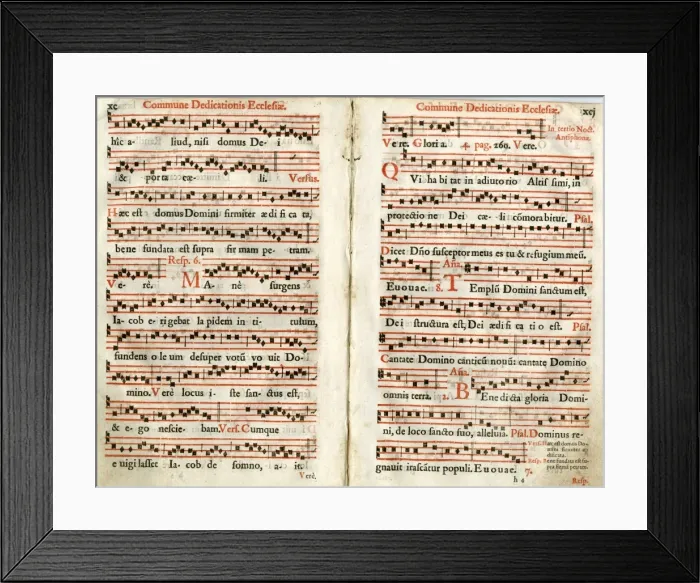 xc Commune Dedicationis Ecclesiæ.
hîc a- liud, nisi domus De- i
& porta cæ- li. Versus.
Hæc est domus Domini firmiter ædi fi ca ta,
bene fundata est supra fir mam pe- tram.
Resp. 6.
Verè. MAnè surgens
Ia- cob e- ri gebat la pidem in ti- tulum,
fundens o le um desuper votū vo uit Do-
mino. Verè locus i- ste san- ctus est,
& e- go nescie- bam. Vers. Cumque
e uigi lasset Ia- cob de somno, a- it.
Verè.
Commune Dedicationis Ecclesiæ. xcj
In tertio Noct.
Antiphona.
Vere. Glori a. 4. pag. 269. Vere.
QVi ha bi tat in adiuto rio Altis simi, in
protectio ne Dei cæ- li cōmora bitur. Psal.
Dicet Dño susceptor meus es tu & refugium meū.
Aña.
Euouae. 8. TEmplū Domini sanctum est,
De i structura est, Dei ædi fi ca ti o est. Psal.
Cantate Domino canticū nouū: cantate Domino
Aña.
omnis terra. 2. BEne di cta gloria Domi-
ni, de loco sancto suo, alleluia. Psal. Dominus re-
gnauit irascātur populi. Euouae. 7.
h 2 Resp.